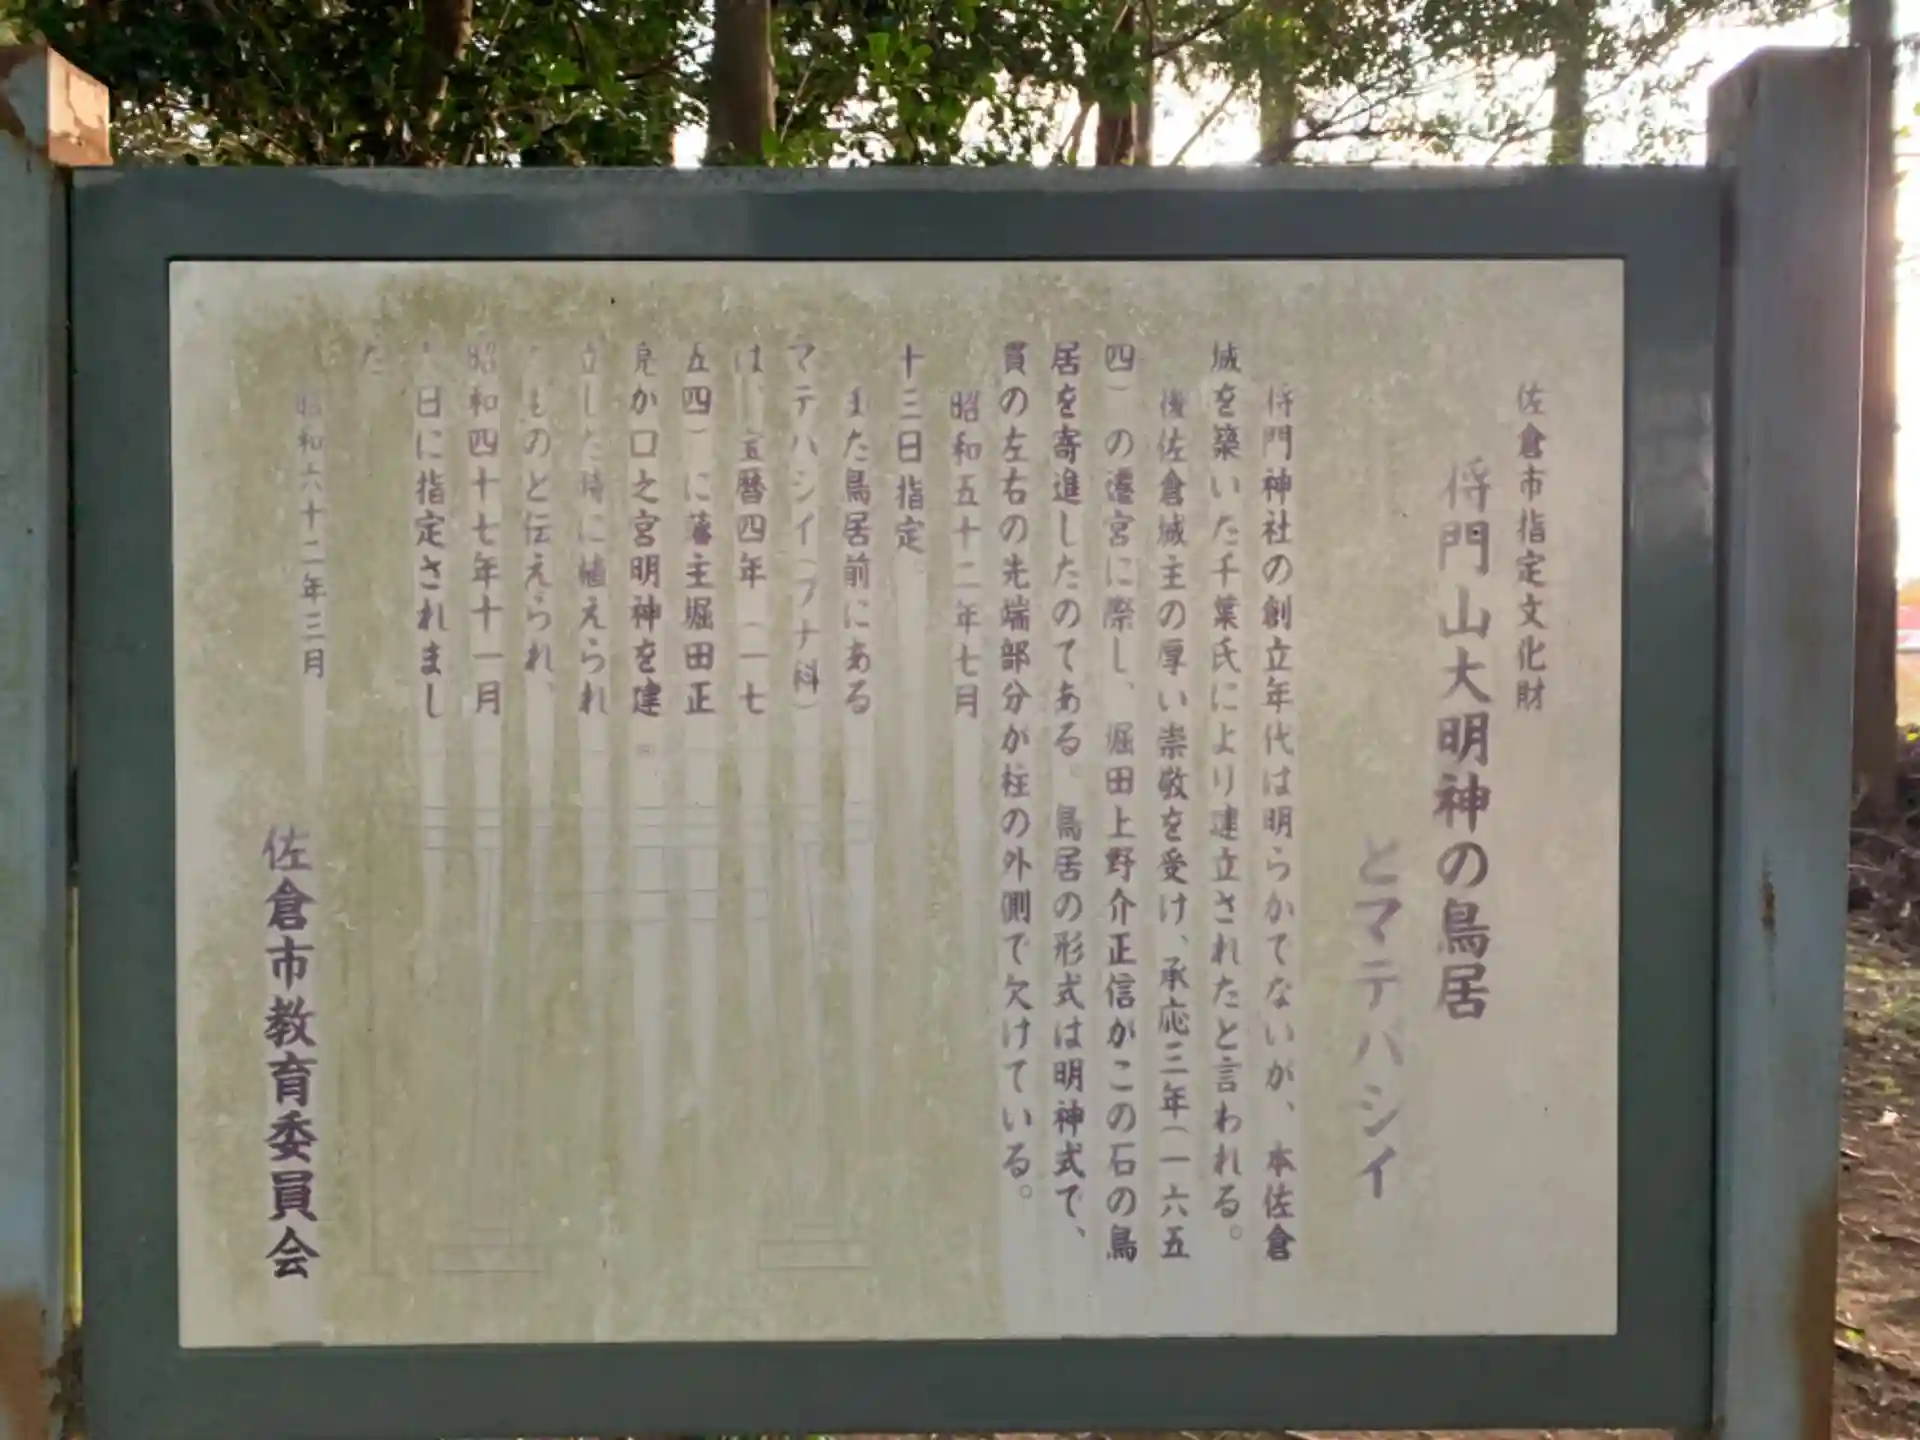 佐倉市指定文化財
将門山大明神の鳥居
とマテバシイ
将門神社の創立年代は明らかでないが、本佐倉
城を築いた千葉氏により建立されたと言われる。
後佐倉城主の厚い崇敬を受け、承応三年（一六五
四）の遷宮に際し、堀田上野介正信がこの石の鳥
居を寄進したのである。鳥居の形式は明神式で、
貫の左右の先端部分が柱の外側で欠けている。
昭和五十二年七月
十三日指定
また鳥居前にある
マテバシイ（ブナ科）
は、宝暦四年（一七
五四）に藩主堀田正
亮が口之宮明神を建
立した時に植えられ
たものと伝えられ、
昭和四十七年十一月
日に指定されまし
た
昭和六十二年三月
佐倉市教育委員会